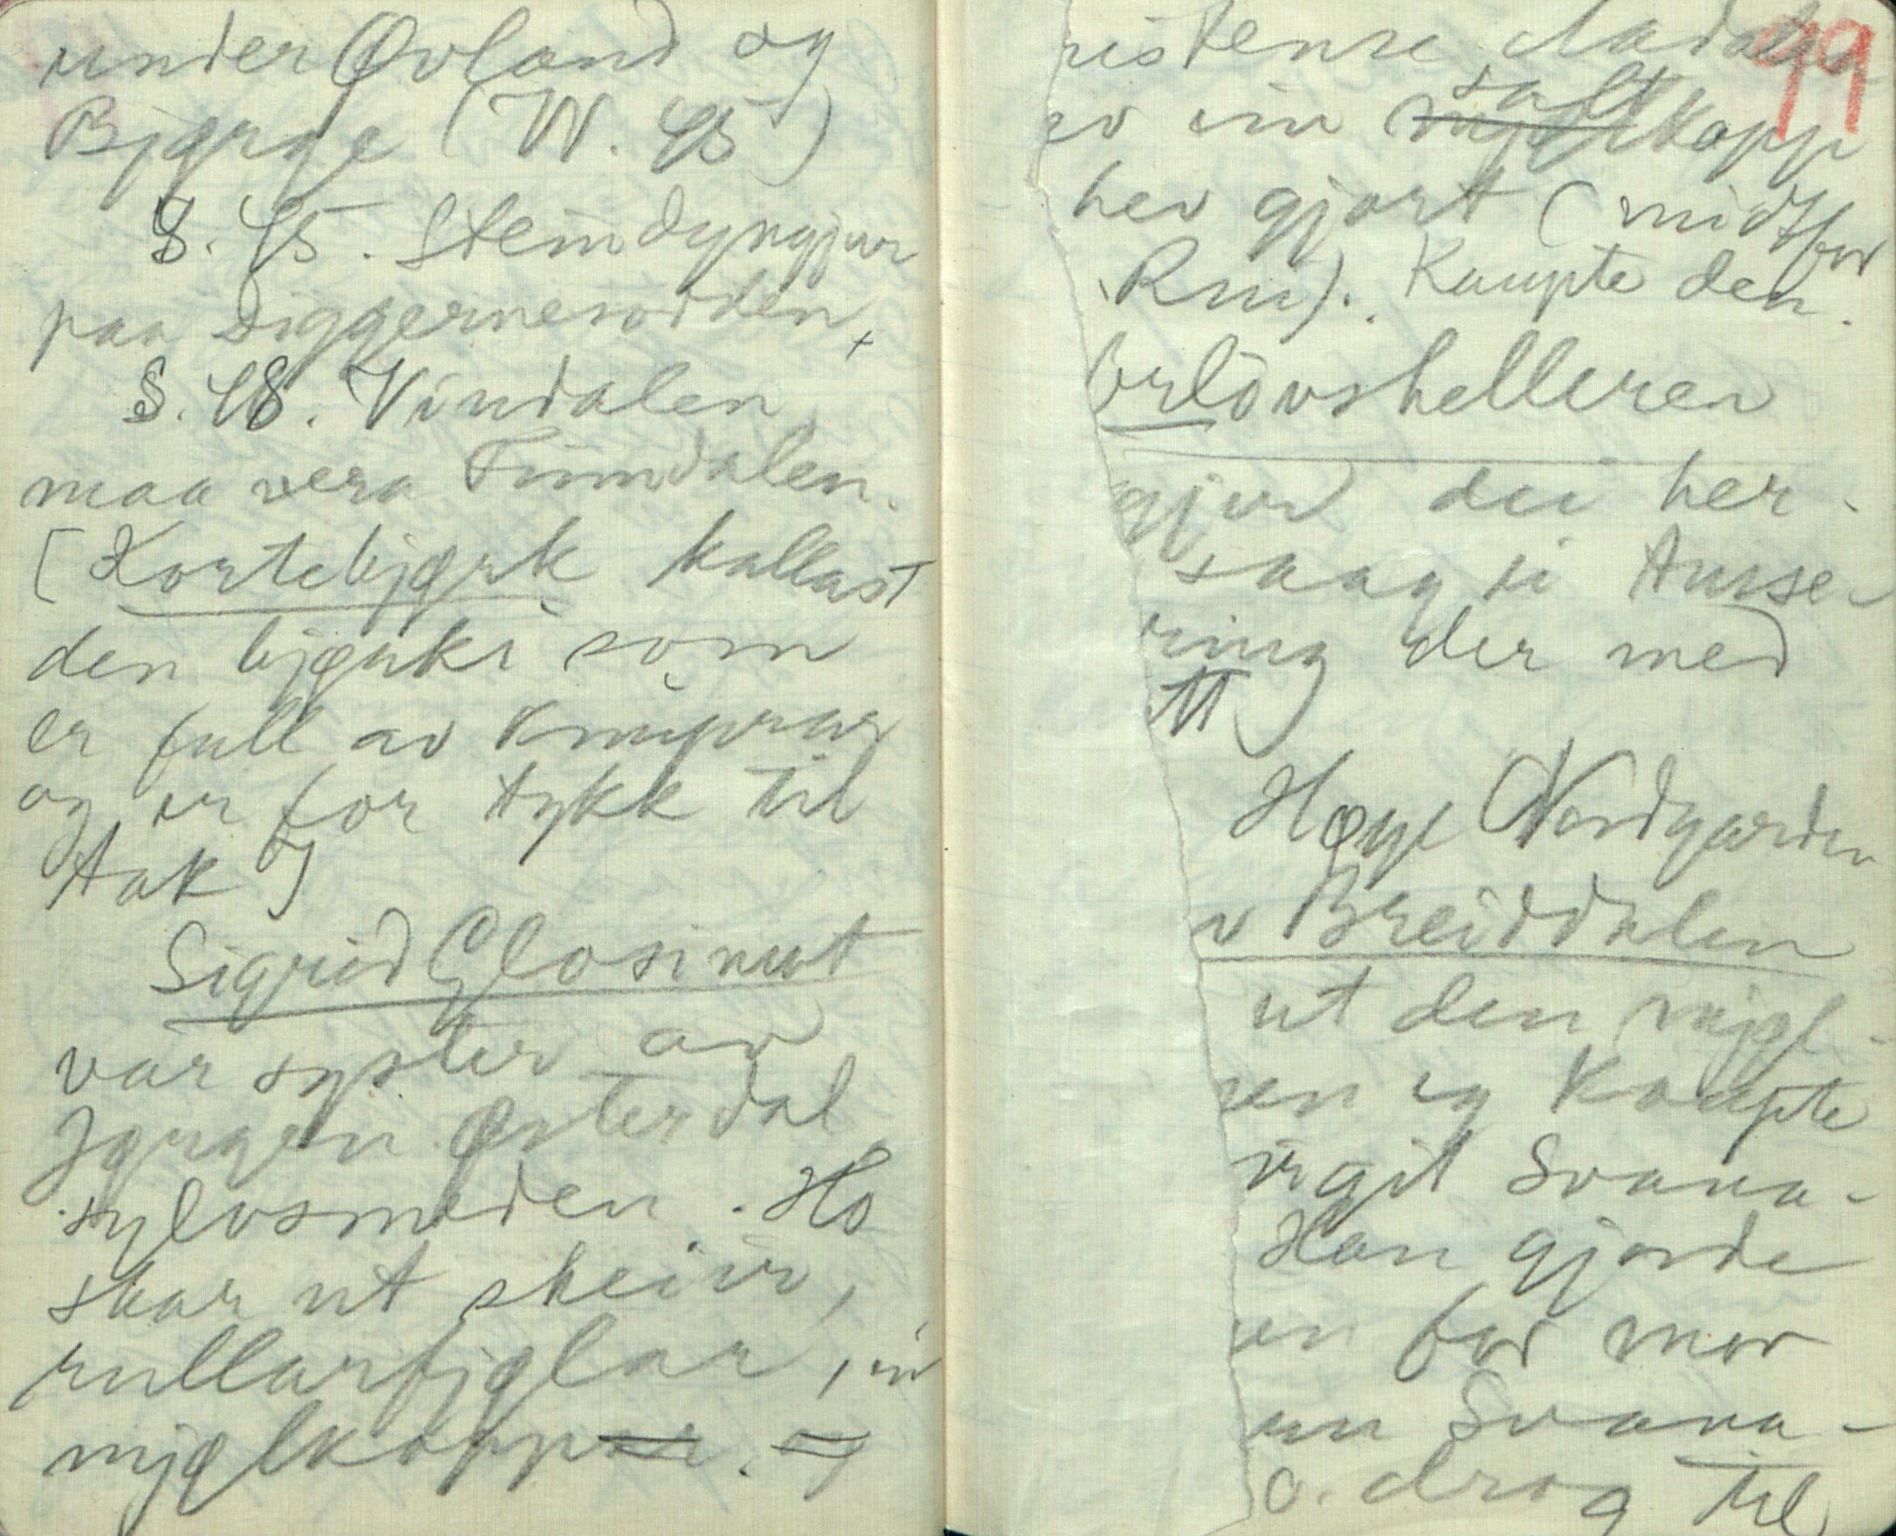 under Øvland og
Bjørge (W. 45)
S. 45. Steindyngjur
paa Diggernesodden,
S. 48. Vindalen
maa vera Finndalen.
[Kortebjørk kallast
den bjørki som
er full av knuprar
og er for tykk til
tak]
Sigrid Glosimot
var syster av
Jørgen Østerdal
sylvsmeden. Ho
skar ut skeier,
rullarfjølar, ei
mjølkopp
99
ristense
ei saltkopp
hev gjort (midt for
Rui). Kaupte den.
orlovshelleren
gjer dei her-
saag i Ausse
ring der med
tt
Høye Nordgarden
v Breiddalen
ut den mjøl-
en eg kaupte
irgit Svana-
Han gjorde
en for mor
un Svana-
o. drog til